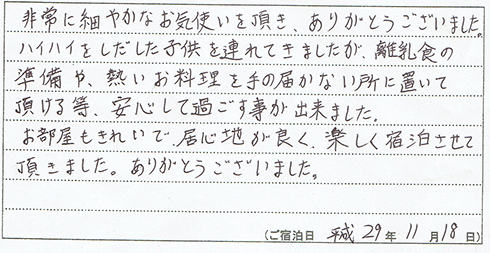 非常に細やかなお気使いを頂き、ありがとうございました。
ハイハイをしだした子供を連れてきましたが、離乳食の
準備や、熱いお料理を手の届かない所に置いて
頂ける等、安心して過ごす事が出来ました。
お部屋もきれいで、居心地が良く、楽しく宿泊させて
頂きました。ありがとうございました。
(ご宿泊日 平成 29年 11月 18日)